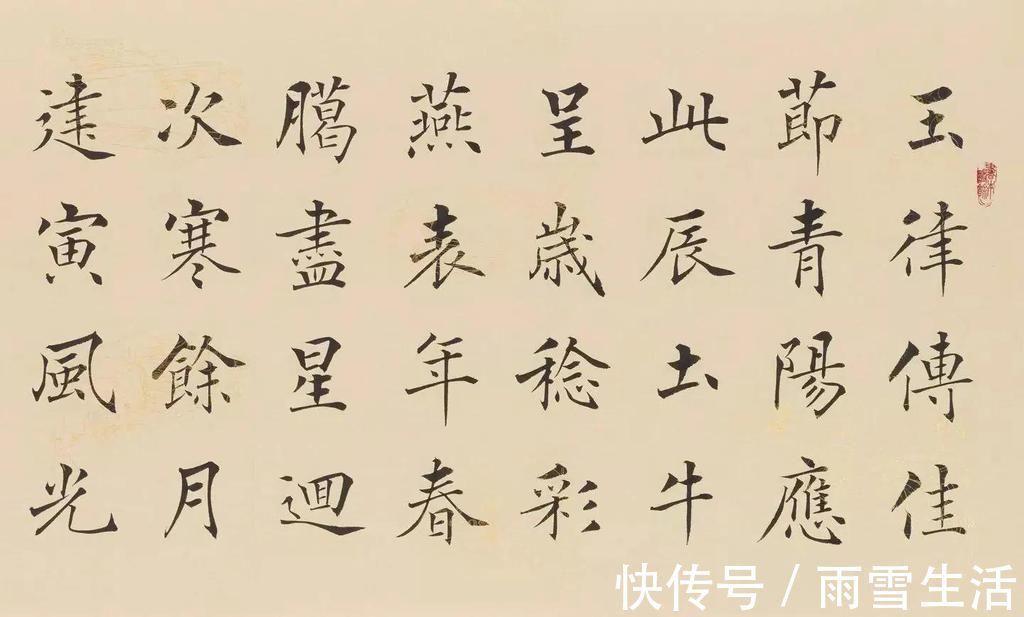 玉律傳佳
節青陽應
此辰土牛
呈歲稔彩
燕表年春
臈盡星迴
次寒餘月
建寅風光
快传号/雨雪生活